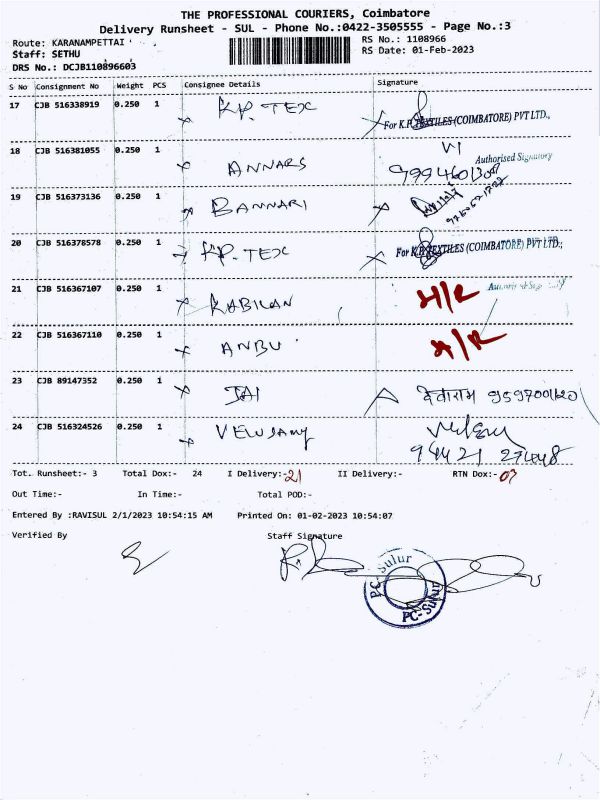 THE PROFESSIONAL COURIERS, Coimbatore
Delivery Runsheet - SUL - Phone No.:0422-3505555 - Page No.:3
Route: KARANAMPETTAI
RS No.: 1108966
Staff: SETHU
RS Date: 01-Feb-2023
DRS No.: DCJB110896603
S No Consignment No Weight PCS Consignee Details Signature
17 CJB 516338919 0.250 1 K.P. TEX
For K.P. TEXTILES (COIMBATORE) PVT LTD.,
18 CJB 516381055 0.250 1 ANNARS
Authorised Signatory
19 CJB 516373136 0.250 1 BANNARI
20 CJB 516378578 0.250 1 KP. TEX
For K.P. TEXTILES (COIMBATORE) PVT LTD.,
21 CJB 516367107 0.250 1 KABILAN
22 CJB 516367110 0.250 1 ANBU
23 CJB 89147352 0.250 1 JAI देवाराम 9597001620
24 CJB 516324526 0.250 1 VELUSAMY
Tot. Runsheet:- 3 Total Dox:- 24 I Delivery:-21 II Delivery:- RTN Dox:-03
Out Time:- In Time:- Total POD:-
Entered By :RAVISUL 2/1/2023 10:54:15 AM Printed On: 01-02-2023 10:54:07
Verified By Staff Signature
PC-Sulur
PC-Sulur